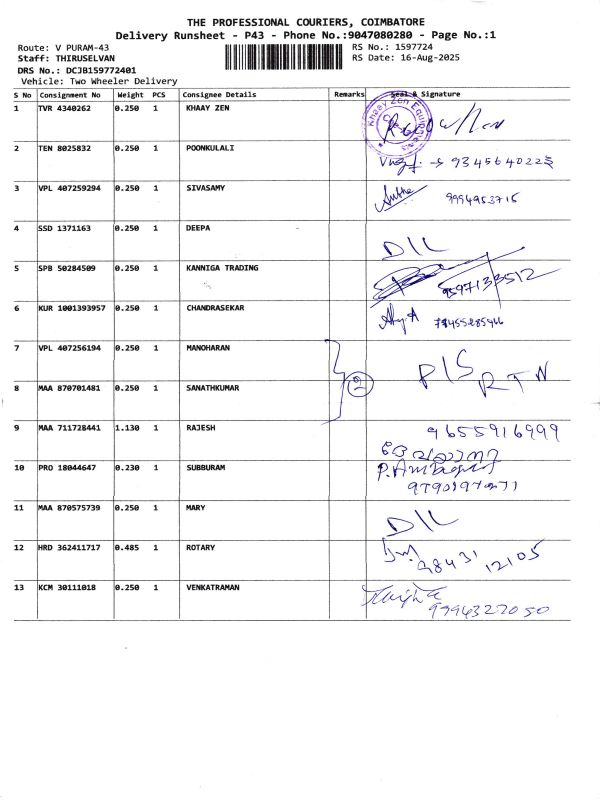 THE PROFESSIONAL COURIERS, COIMBATORE
Delivery Runsheet - P43 - Phone No.:9047080280 - Page No.:1
Route: V PURAM-43 RS No.: 1597724
Staff: THIRUSELVAN RS Date: 16-Aug-2025
DRS No.: DCJB159772401
Vehicle: Two Wheeler Delivery
S No Consignment No Weight PCS Consignee Details Remarks Seal & Signature
1 TVR 4340262 0.250 1 KHAAY ZEN
2 TEN 8025832 0.250 1 POONKULALI
3 VPL 407259294 0.250 1 SIVASAMY 9994953715
4 SSD 1371163 0.250 1 DEEPA D/L
5 SPB 50284509 0.250 1 KANNIGA TRADING 9597133512
6 KUR 1001393957 0.250 1 CHANDRASEKAR
7 VPL 407256194 0.250 1 MANOHARAN
8 MAA 870701481 0.250 1 SANATHKUMAR 2 P/S RTN
9 MAA 711728441 1.130 1 RAJESH 9655916999
10 PRO 18044647 0.230 1 SUBBURAM
11 MAA 870575739 0.250 1 MARY D/L
12 HRD 362411717 0.485 1 ROTARY 98431 12105
13 KCM 30111018 0.250 1 VENKATRAMAN 9994327050